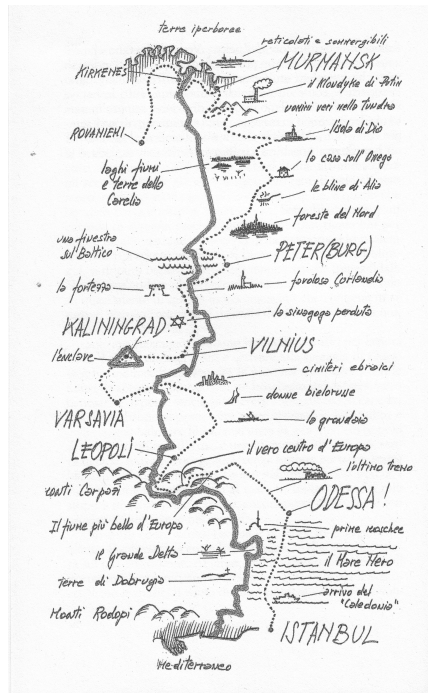 terre iperboree
reticolati e sommergibili
MURMANSK
KIRKENES
il Klondyke di Putin
uomini veri nella Tundra
l'Isola di Dio
ROVANIEMI
la casa sull'Onega
laghi fiumi
e terre della
Carelia
le bline di Alia
foreste del Nord
una finestra
sul Baltico
PETER(BURG)
la fortezza
favolosa Curlandia
la sinagoga perduta
KALININGRAD
VILNIUS
l'enclave
cimiteri ebraici
donne bielorusse
VARSAVIA
la grandaia
LEOPOLI
il vero centro d'Europa
l'ultimo treno
monti Carpazi
ODESSA!
Il fiume più bello d'Europa
prime moschee
il Grande Delta
il Mare Nero
terre di Dobrugia
arrivo del
"Caledonia"
Monti Rodopi
ISTANBUL
Mediterraneo